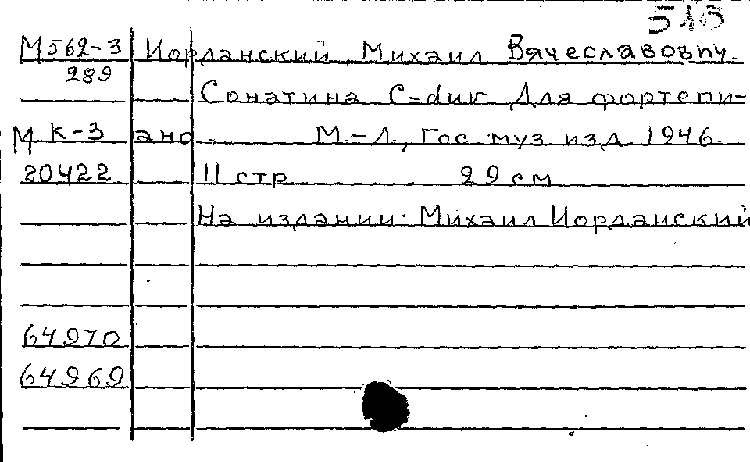 515
М562-3 Иорданский, Михаил Вячеславович.
289
Сонатина C-dur Для фортепи-
М К-3 ано. М.-Л., Гос. муз. изд. 1946.
20422 11 стр. 29 см
На издании: Михаил Иорданский
64970
64969